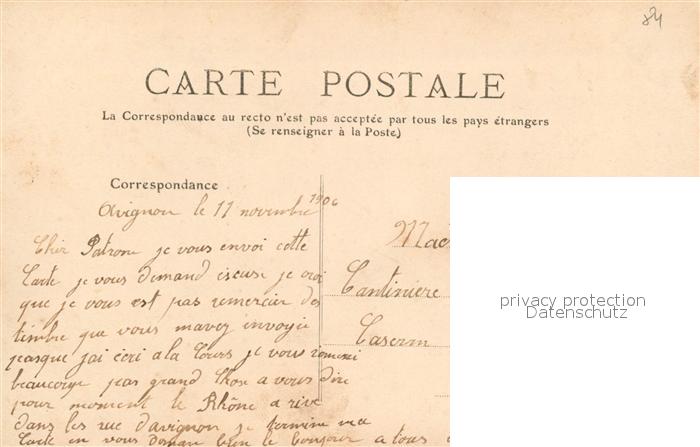 84
CARTE POSTALE
La Correspondance au recto n'est pas acceptée par tous les pays étrangers
(Se renseigner à la Poste)
Correspondance
Avignon le 11 novembre 1906
Cher Patrone je vous envoi cette
Carte je vous demand excuse je croi
que je vous est pas remercier des
timbre que vous mavez envoyée
pasque jai écri a la Cours je vous remerci
beaucoup pas grand Chose a vous dire
pour moment le Rhône a rive
dans les rue davignon je termine ma
Carte en vous donan bien le bonjour a tous
Mad
Cantiniere
Caserm
privacy protection
Datenschutz